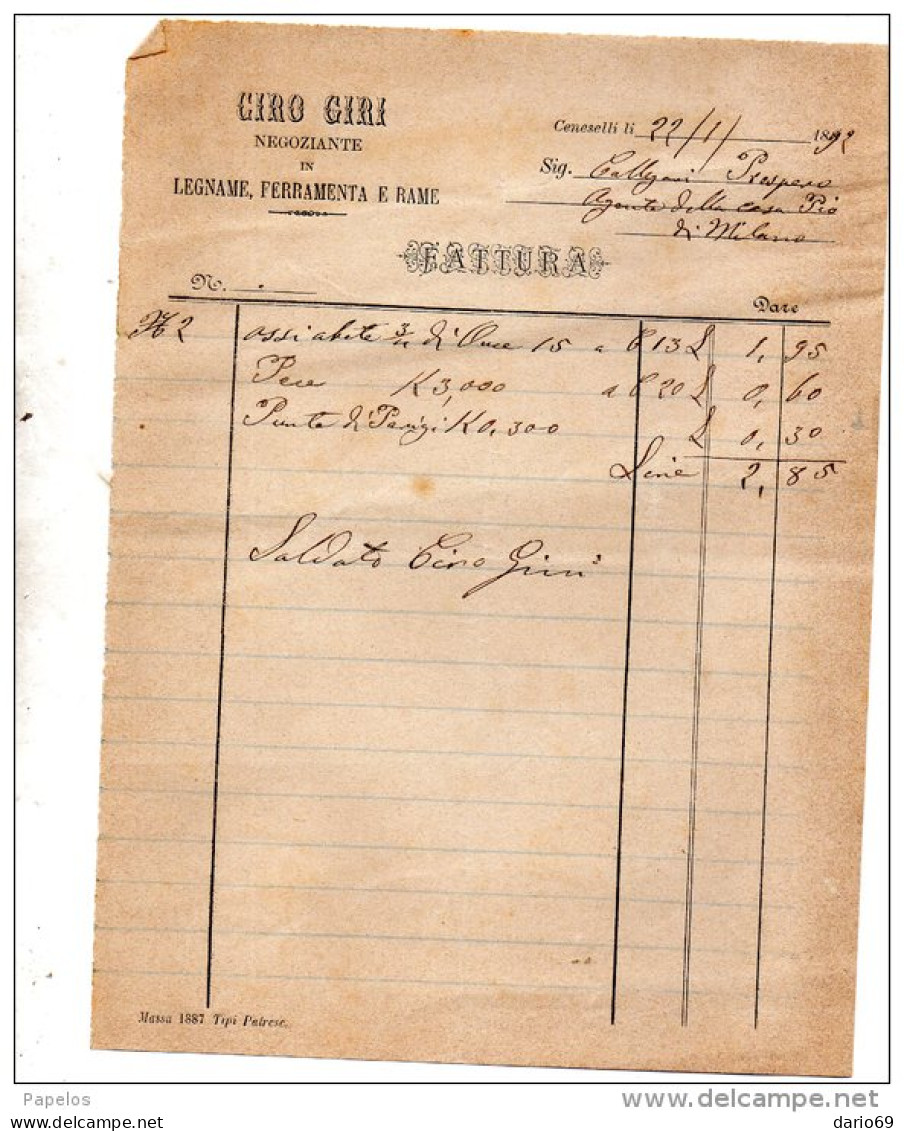 CIRO GIRI
NEGOZIANTE
IN
LEGNAME, FERRAMENTA E RAME
Ceneselli li 22/1/ 1892
Sig. Callegari Prospero
Agente della casa Pio
di Milano
FATTURA
N.
Dare
N 2 assi abete 3/4 di Once 15 a C 13 L 1,95
Pece K 3,000 a C 20 L 0,60
Punte di Parigi K 0,300 L 0,30
Lire 2,85
Saldato Ciro Giri
Massa 1887 Tipi Patrese.
Papelos
delcampe.net
dario69